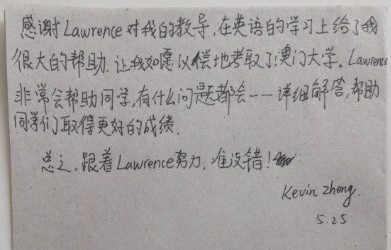 感谢Lawrence对我的教导，在英语的学习上给了我
很大的帮助．让我如愿以偿地考取了澳门大学。Lawrence
非常会帮助同学，有什么问题都会一一详细解答，帮助
同学们取得更好的成绩．
总之，跟着Lawrence努力，准没错！
Kevin zheng.
5.25